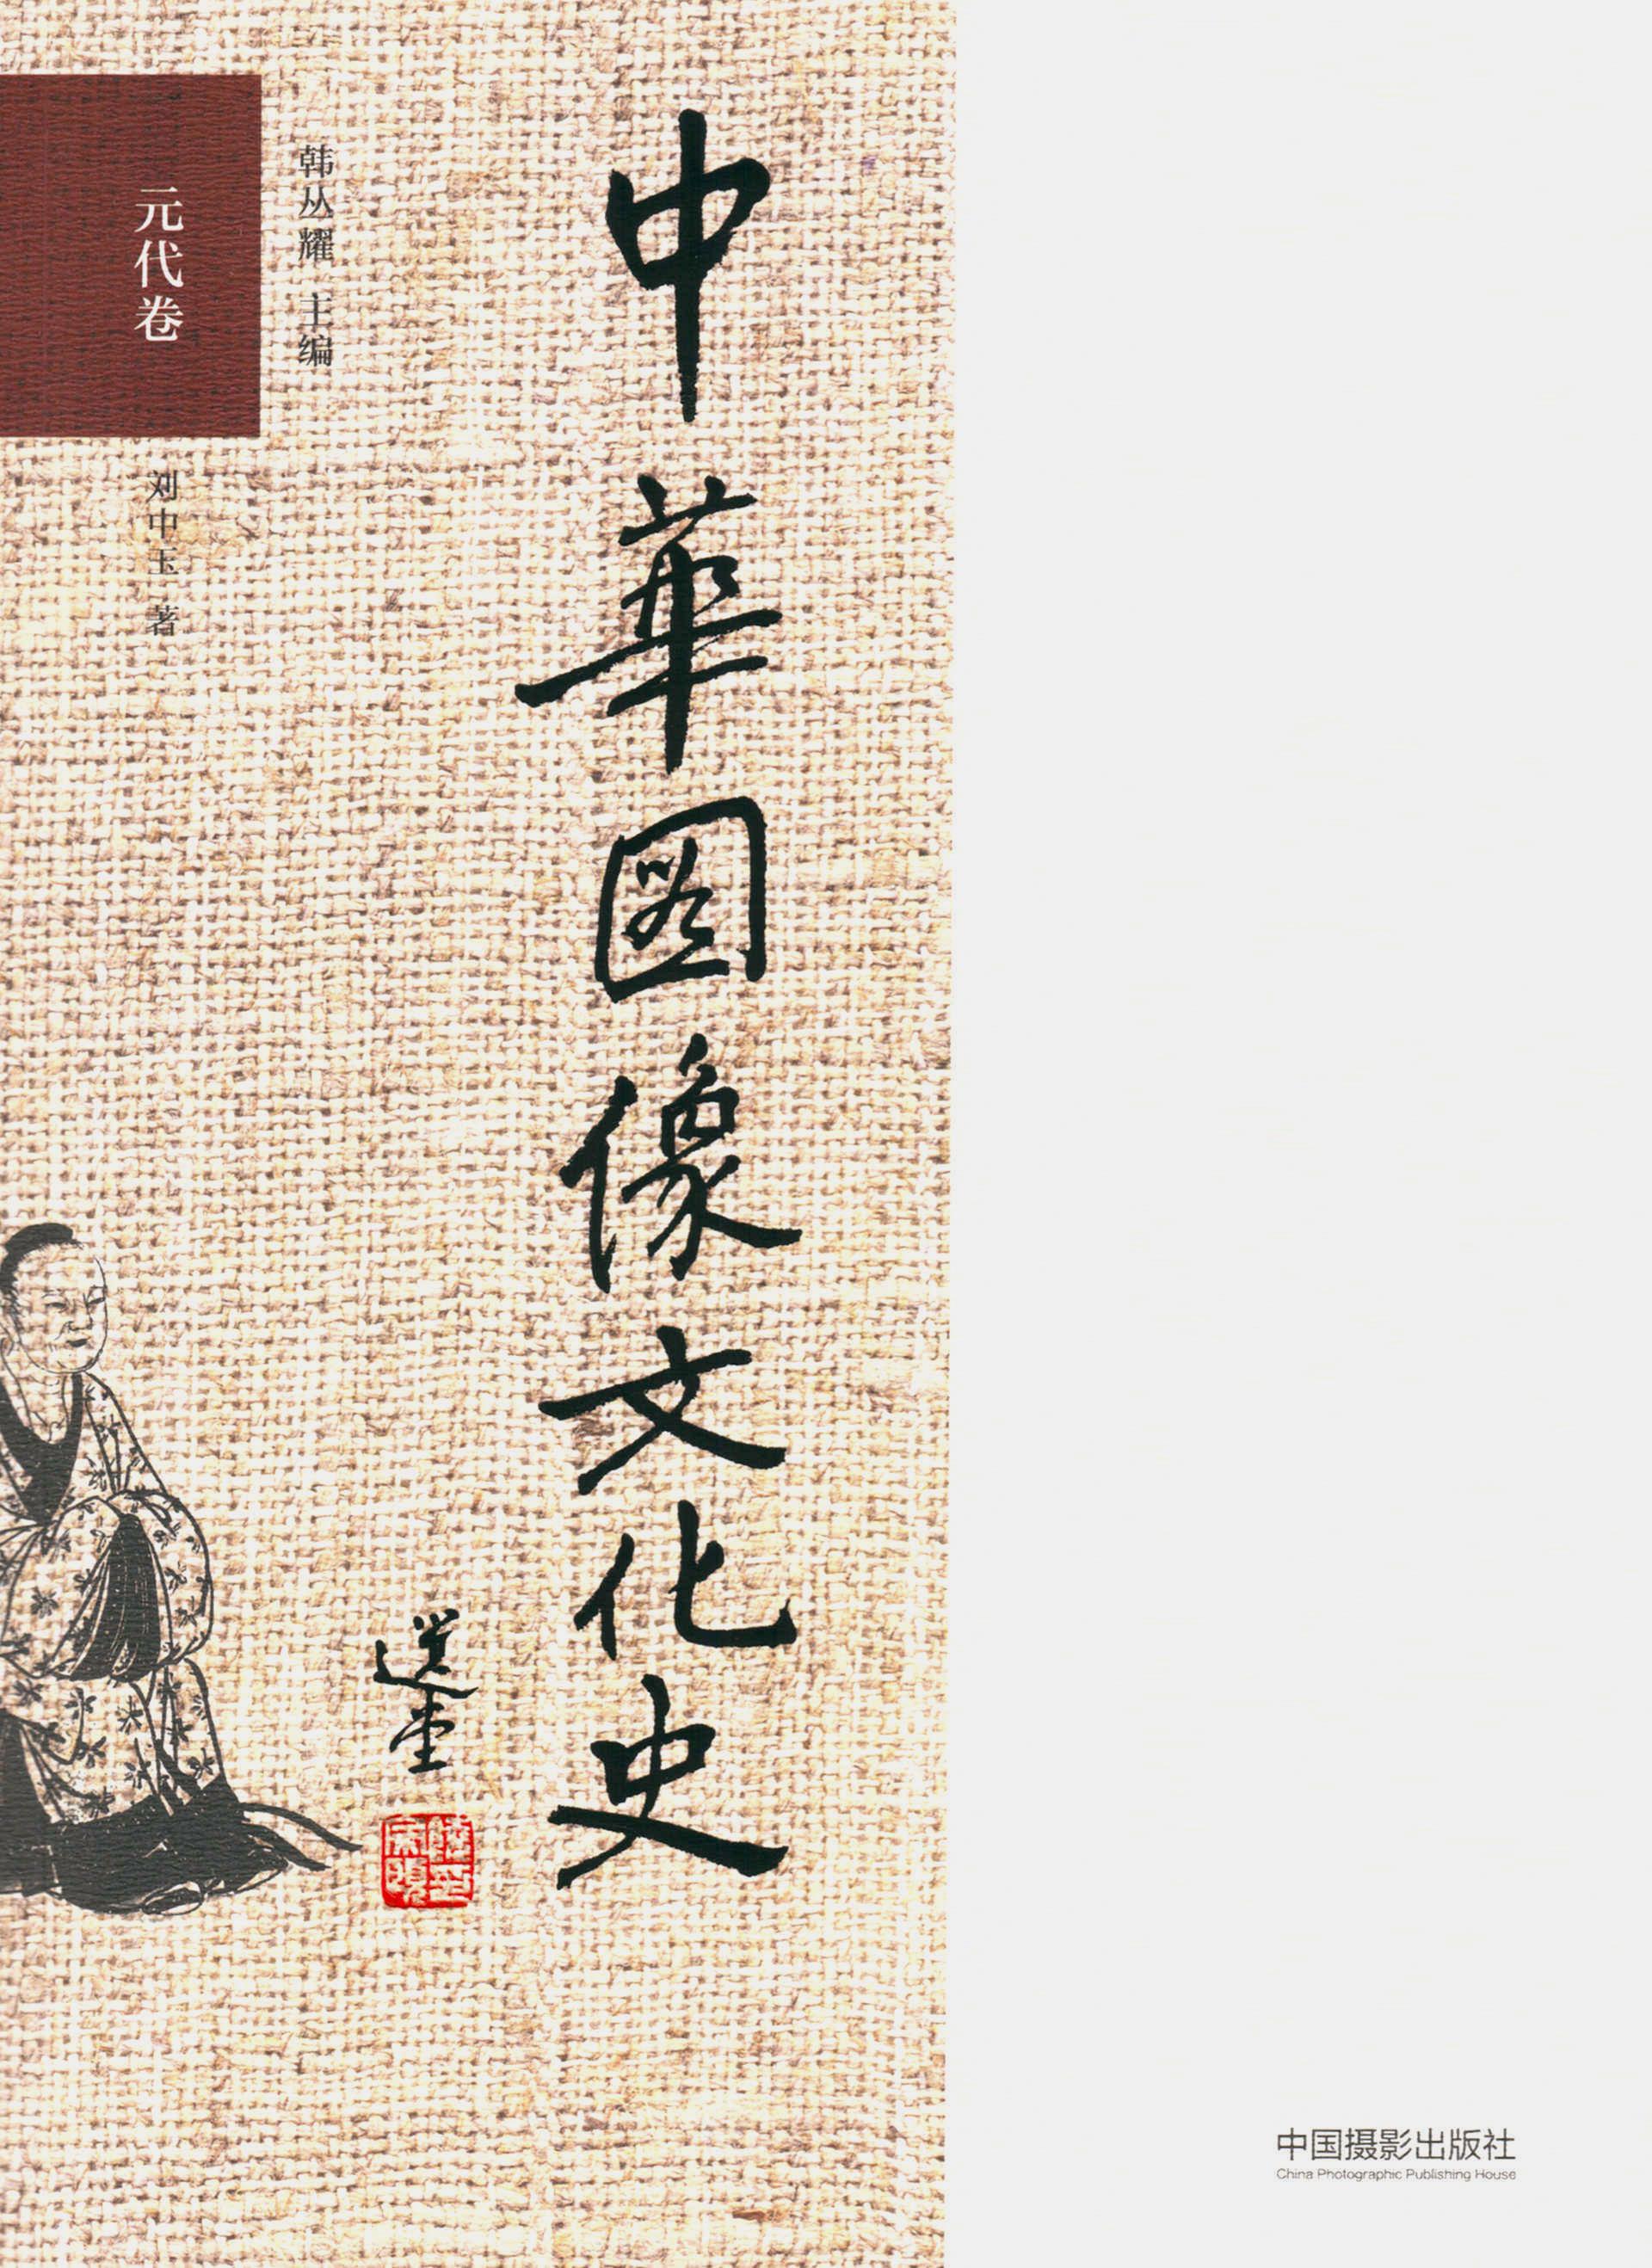 中華图像文化史
選堂
韩丛耀 主编
元代卷
刘中玉 著
中国摄影出版社
China Photographic Publishing House